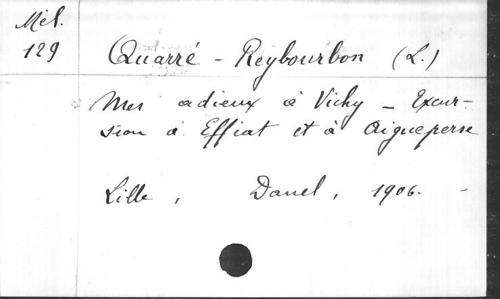 Mél.
129
Quarré - Reybourbon (L.)
Mes adieux à Vichy - Excur-
sion à Effiat et à Aigueperse
Lille, Danel, 1906.